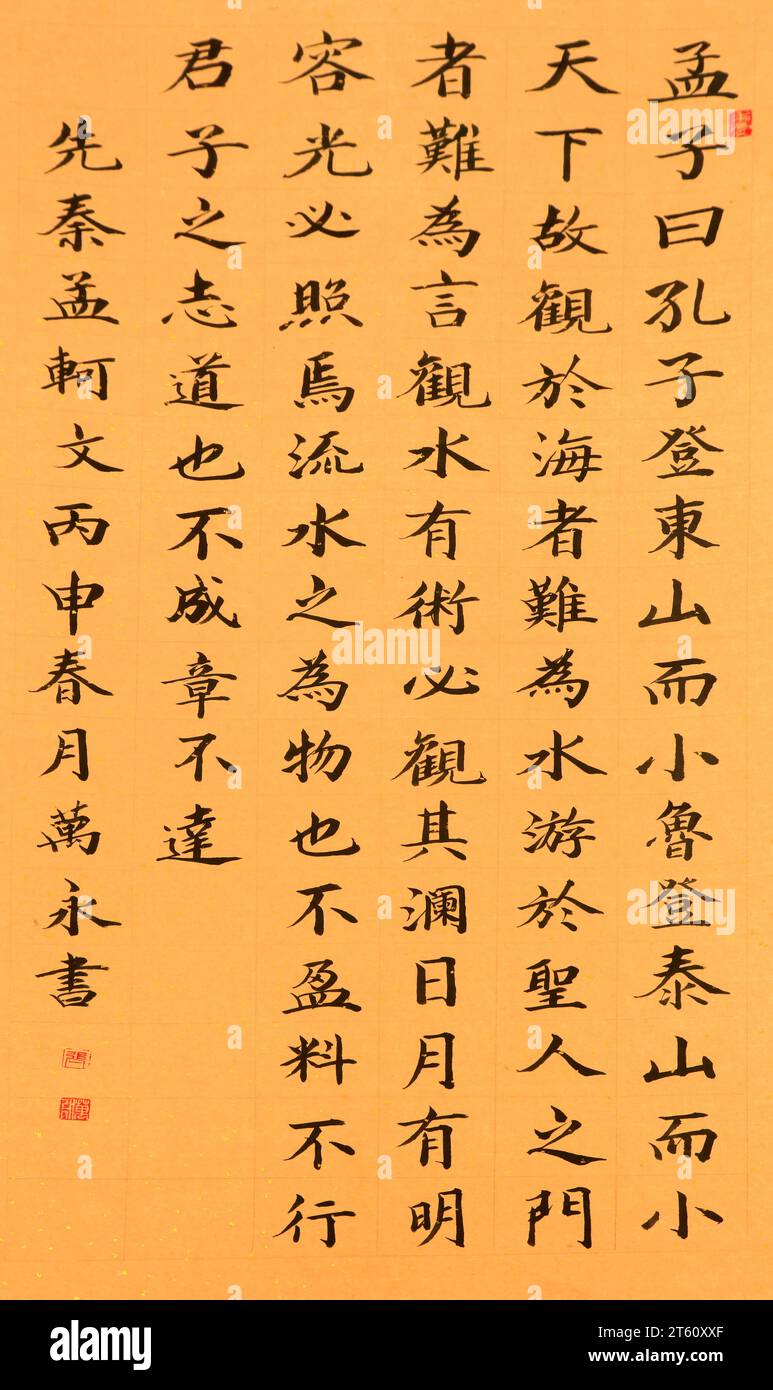 孟子曰孔子登東山而小魯登泰山而小
天下故觀於海者難為水游於聖人之門
者難為言觀水有術必觀其澜日月有明
容光必照焉流水之為物也不盈料不行
君子之志道也不成章不達
先秦孟軻文丙申春月萬永書
alamy
alamy
Image ID: 2T60XXF
www.alamy.com